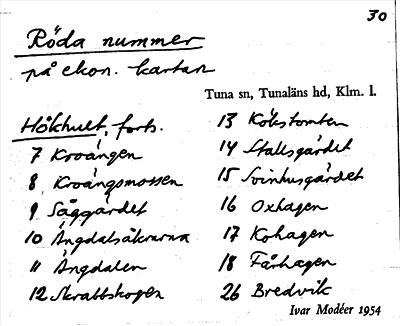 30
Röda nummer
på ekon. kartan
Tuna sn, Tunaläns hd, Klm. l.
Hökhult, forts.
7 Kroängen
8 Kroängsmossen
9 Såggärdet
10 Ängdalsåkrarna
11 Ängdalen
12 Skrabbskogen
13 Kökstomten
14 Stallsgärdet
15 Svinhusgärdet
16 Oxhagen
17 Kohagen
18 Fårhagen
26 Bredvik
Ivar Modéer 1954